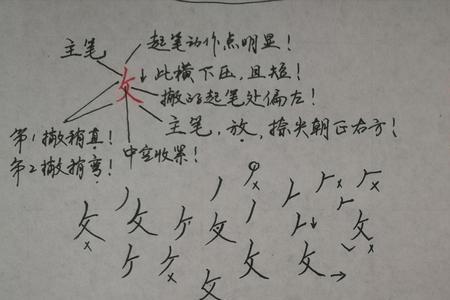 主笔
起笔动作点明显！
此横下压，且短！
攵
撇的起笔处偏左！
主笔，放，捺尖朝正右方！
第1撇稍直！
第2撇稍弯！
中宫收紧！